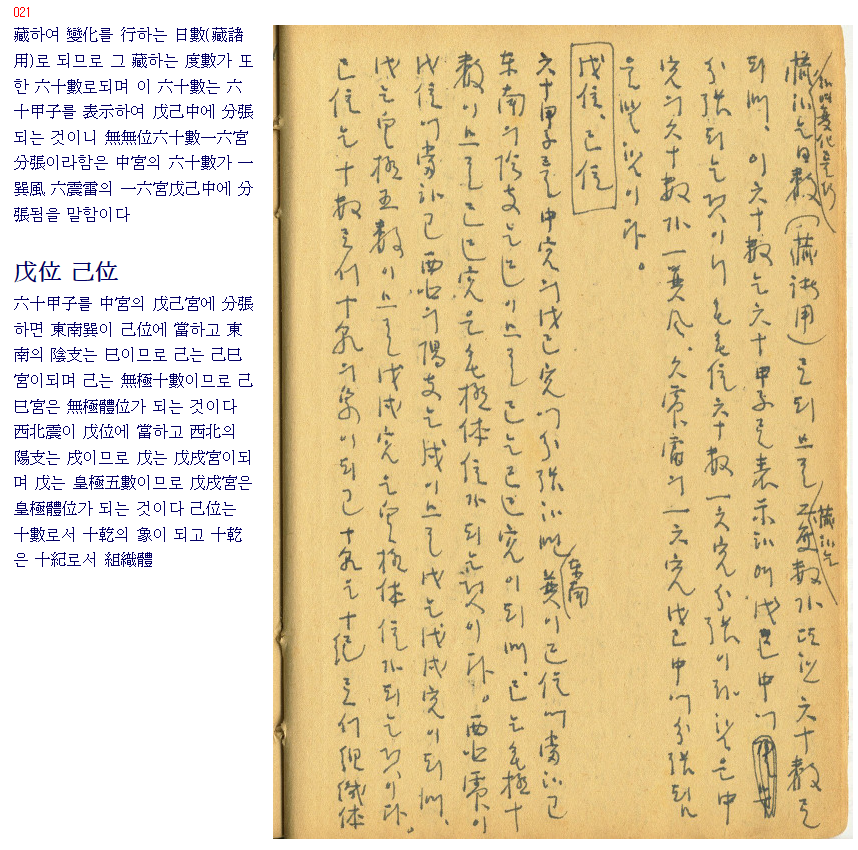 021
藏하여 變化를 行하는 日數(藏諸
用)로 되므로 그 藏하는 度數가 또
한 六十數로되며 이 六十數는 六
十甲子를 表示하여 戊己中에 分張
되는 것이니 無無位六十數一六宮
分張이라함은 中宮의 六十數가 一
巽風 六震雷의 一六宮戊己中에 分
張됨을 말함이다
戊位 己位
六十甲子를 中宮의 戊己宮에 分張
하면 東南巽이 己位에 當하고 東
南의 陰支는 巳이므로 己는 己巳
宮이되며 己는 無極十數이므로 己
巳宮은 無極體位가 되는 것이다
西北震이 戊位에 當하고 西北의
陽支는 戌이므로 戊는 戊戌宮이되
며 戊는 皇極五數이므로 戊戌宮은
皇極體位가 되는 것이다 己位는
十數로서 十乾의 象이 되고 十乾
은 十紀로서 組織體
藏하여 變化를 行하는 日數(藏諸用)로 되므로 그 藏하는 度數가 또한 六十數로
되며、이 六十數는 六十甲子로 表示하여 戊己中에
分張되는 것이니 无无位六十數一六宮分張이라함은 中
宮의 六十數가 一巽风、六震雷의 一六宮戊己中에 分張됨
을 말함이다。
戊位、己位
六十甲子를 中宮의 戊己宮에 分張하면 东南巽이 己位에 當하고
东南의 陰支는 巳이므로 己는 己巳宮이되며、己는 无極十
數이므로 己巳宮은 无極体位가 되는것이다。西北震이
戊位에 當하고 西北의 陽支는 戌이므로 戊는 戊戌宮이되며、
戊는 皇極五數이므로 戊戌宮은 皇極体位가 되는것이다。
己位는 十數로서 十乾의 象이되고 十乾은 十紀로서 組織体